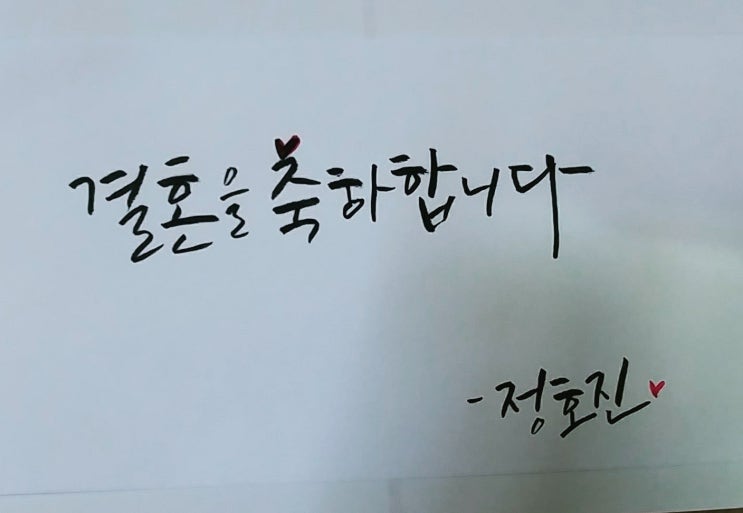 결혼을 축하합니다
- 정호진